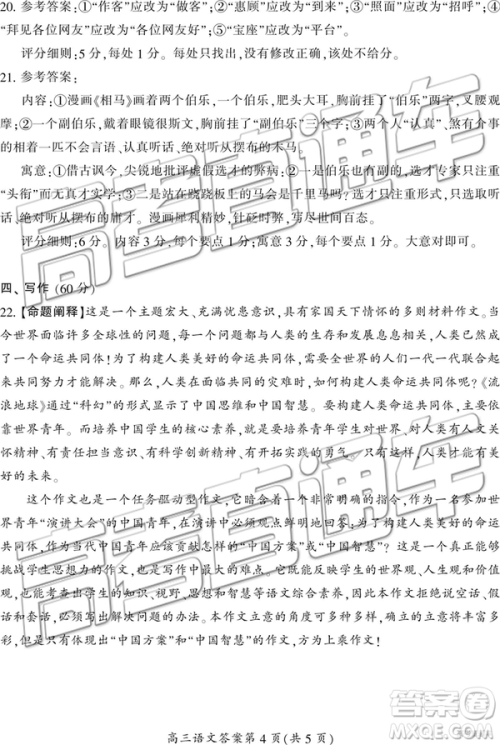 20. 参考答案:①“作客”应改为“做客”;②“惠顾”应改为“到访”;③“照面”应改为“招呼”;④
“拜见各位网友”应改为“各位网友好”;⑤“宝座”应改为“平台”。
评分细则:5分,每处1分。大意正确即可。没有修改不给分。
21. 参考答案:
内容:①漫画《相马》画着两个伯乐,一个伯乐,肥头大耳,胸前挂了“伯乐”两字,叉腰观
摩;②一个副伯乐,戴着眼镜很斯文,胸前挂了“副伯乐”三个字;③两个人“认真”、煞有介事
的相着一匹不会言语、认人摆布的木马。
寓意:①借古讽今,尖锐地批评虚假选才的弊病;②一是伯乐是否真懂,选才专家只注重
“头衔”而无真才实学;③二是站在跷跷板上的马会是千里马吗?选才只注重形式,只选取听
话、任人摆布的庸才。漫画犀利精妙,针砭时弊,穷尽世间百态。
评分细则:6分。内容3分,每个要点1分;寓意3分,每个要点1分。大意对即可。
四、写作(60分)
22.【命题阐释】这是一个主题宏大、充满忧患意识,具有家国天下情怀的多则材料作文。当
今世界面临许多全球性的问题,每一个问题都与人类的生存和发展息息相关,全世界已然成了
一个命运共同体!为了构建人类美好的命运共同体,需要全世界的人们一代一代联合起
来共同努力才能解决。那么,人类在共同的灾难时,如何构建人类命运共同体呢?《流
浪地球》通过“科幻”的形式显示了中国思维和中国智慧。要构建人类命运共同体,必须
培养世界青年。而培养中国学生的核心素养,就是为了培养中国学生,对人类有人文情怀
精神、有责任担当意识、有科学创新精神、有开拓实践的勇气。只有这样,人类才能有美
好的未来。
这个作文也是一个任务驱动型作文,它有一个非常明确的指令,作为一名参加世
界青年“演讲大会”的中国青年,在演讲中你必须观点鲜明地阐述如何构建人类美好的命
运共同体,作为当代中国青年应该贡献怎样的“中国方案”或“中国智慧”。这是一个真正能够
挑战学生思想情怀的作文,也是写作中最大的难点。它既考查学生的世界观、人生观和
价值观,也考查学生的知识、视野、思想和思维等语文综合素养。因此,本作文拒绝说空话、假
话和套话,必须给出解决问题的办法。本作文立意的角度可多样,文章主题也将丰富多
彩,但是只有体现出“中国方案”和“中国智慧”的作文,方为上乘之作文!
高三语文答案第4页(共5页)
高考直通车
高考直通车